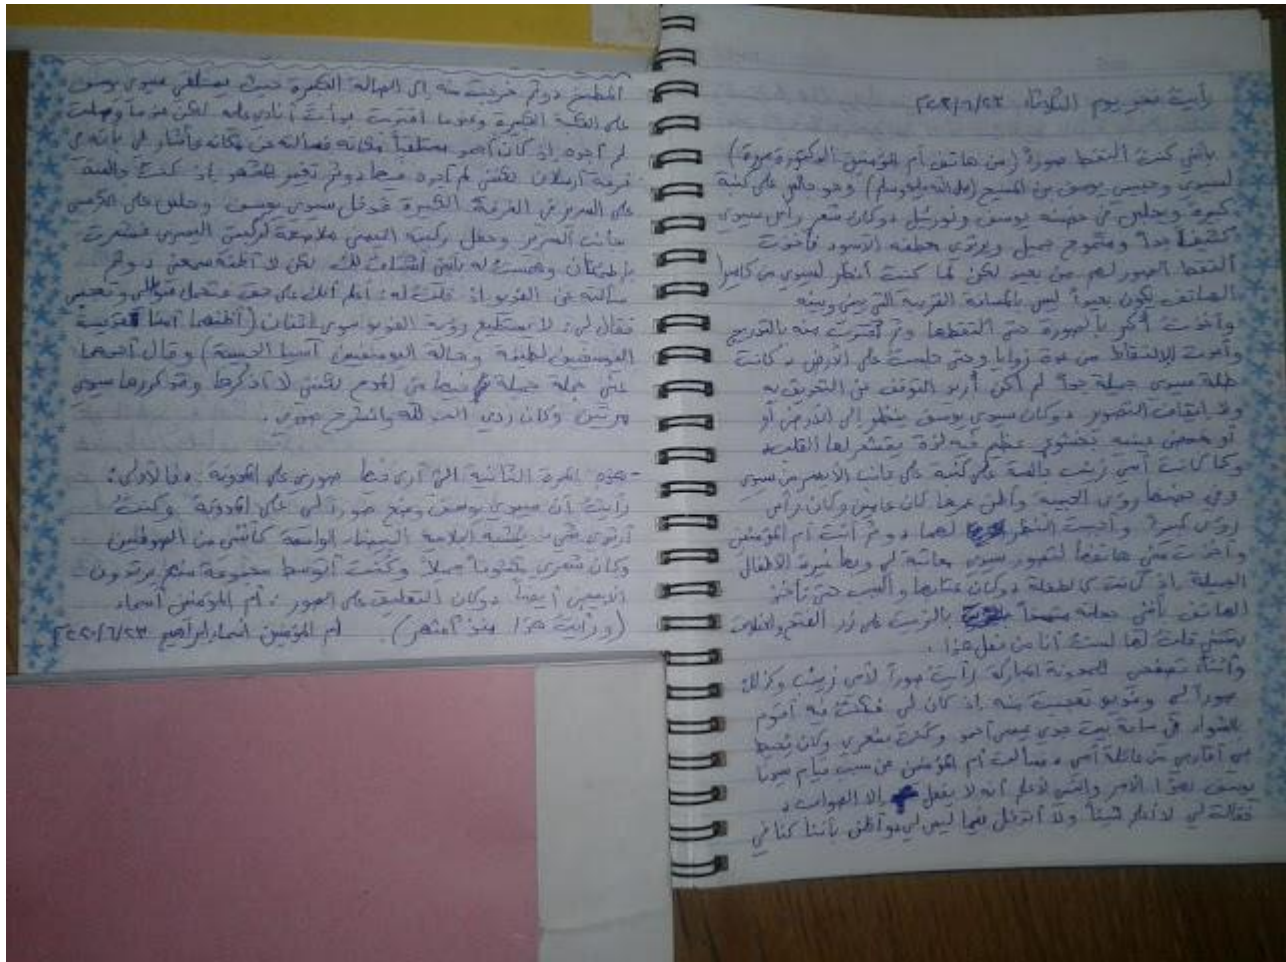 رأيت فجر يوم الثلاثاء ٢٠٢٠/٦/٢٣
بأنني كنت ألتقط صورة (من هاتف أم المؤمنين الدكتورة مروة)
لسيدي وحبيبي يوسف بن المسيح (صلى الله عليه وسلم) وهو جالس على كنبة
كبيرة ويجلس في حضنه يوسف ونورسيل وكان شعر رأس سيدي
كثيفاً جداً ومتموج جميل ويرتدي معطفه الأسود فأخذت
ألتقط الصور لهم من بعيد لكن لما كنت أنظر لسيدي من كاميرا
الهاتف يكون بعيداً ليس بالمسافة القريبة التي بيني وبينه
وأخذت أكبر بالصورة حتى التقطها وثم اقتربت منه بالتدريج
وأعدت الالتقاط من عدة زوايا وحتى جلست على الأرض وكانت
طلة سيدي جميلة جداً لم أكن أريد التوقف عن التحديق به
ولا إيقاف التصوير وكان سيدي يوسف ينظر إلى الأرض أو
أو مغمض عينيه بخشوع عظيم فيه لذة يقشعر لها القلب
وكما كانت أمي زينب جالسة على كنبة على جانب الأيسر من سيدي
وفي حضنها رؤى الحبيبة وأظن عمرها كان عامين وكان رأس
رؤى كبيرة وأحببت النظر لهما وثم أتت أم المؤمنين
وأخذت مني هاتفها لتصور سيدي معاتبة لي وبها غيرة الأطفال
الجميلة إذ كانت كالطفلة وكان عتابها والسبب حتى تأخذ
الهاتف بأنني جعلته متسخاً بالزيت على زر الفتح والإغلاق
يقيني قلت لها لست أنا من فعل هذا .
وأثناء تصفحي المدونة المباركة رأيت صوراً لأمي زينب وكذلك
صوراً لي وفيديو تعجبت منه إذ كان لي فكنت فيه أقوم
بالشواء في ساحة بيت جدي عيسى أحمد وكنت بشعري وكان يحيط
بي أقاربي من عائلة أمي فسألت أم المؤمنين عن سبب قيام سيدنا
يوسف بهذا الأمر وإنني لأعلم أنه لا يفعل إلا الصواب
فقالت لي لا أعلم شيئاً ولا أتدخل فيما ليس لي وأظن بأننا كنا في
المطبخ وثم خرجت منه إلى الصالة الكبيرة حيث يستلقي سيدي يوسف
على الكنبة الكبيرة وعندما اقتربت بدأت أنادي عليه لكن عندما وصلت
لم أجده إذ كان أحمد مستلقياً مكانه فسألته عن مكانه فأشار لي بأنه في
غرفة أرسلان لكنني لم أجده فيها وثم تغير المشهد إذ كنت جالسة
على السرير في الغرفة الكبيرة فدخل سيدي يوسف وجلس على الكرسي
بجانب السرير وجعل ركبته اليمنى ملاصقة لركبتي اليسرى فشعرت
بإطمئنان وهمست له بأنني اشتقت لك لكن لا أظنه سمعني وثم
سألته عن الفيديو إذ قلت له: أعلم أنك على حق فتحمل سؤالي وتعجبي
فقال لي: لا يستطيع رؤية الفيديو سوى اثنان (أظنهما أمنا القديسة
اليوسفيين لطيفة وخالة اليوسفيين آسيا الحبيبة) وقال أحدهما
عني جملة جميلة فيها من المدح لكنني لا أذكرها وقد كررها سيدي
مرتين وكان ردي الحمد لله وانشرح صدري .
-هذه المرة الثانية التي أرى فيها صوري على المدونة ، فالأولى:
رأيت أن سيدي يوسف وضع صوراً لي على المدونة وكنت
أرتدي شيء يشبه العباءة البيضاء الواسعة كأنني من الصوفيين
وكان شعري مكشوفاً جميلاً وكنت أتوسط مجموعة منهم يرتدون
الأبيض أيضاً وكان التعليق على الصور : أم المؤمنين أسماء
(ورأيت هذا منذ أشهر). أم المؤمنين أسماء إبراهيم ٢٠٢٠/٦/٢٣